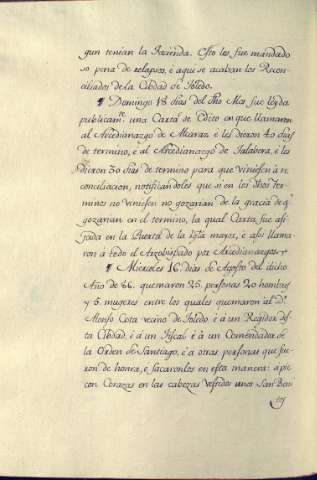 gun tenian la Hacienda. Esto les fue mandado
so pena de relapsos, è aqui se acaban los Recon-
ciliados de la Cibdad de Toledo.
¶ Domingo 18 dias del dho Mes fue leyda
publicamte una Carta de Edito en que llamaron
al Arcedianazgo de Alcaraz è les dieron 40 dias
de termino, è al Arcedianazgo de Talabera, è les
dieron 30 dias de termino para que viniesen à re-
conciliacion, notificandoles que si en los dhos Ter-
minos no viniesen no gozarian de la gracia de q.
gozarian en el termino, la qual Carta fue afi-
jada en la Puerta de la Iglª mayor, è assi llama-
ron à todo el Arzobispado por Arcedianazgos.
¶ Miercoles 16 dias de Agosto del dicho
Año de 86. quemaron 25. personas 20 hombres
y 5. mugeres entre los quales quemaron al Dr.
Alonso Cota vecino de Toledo è à un Regidor des-
ta Cibdad, è à un Fiscal è à un Comendador de
la Orden de Santiago, è à otras personas que fue-
ron de honra, è sacaronlos en esta manera: a pie
con Corozas en las cabezas vestidos unos San Beni
tos